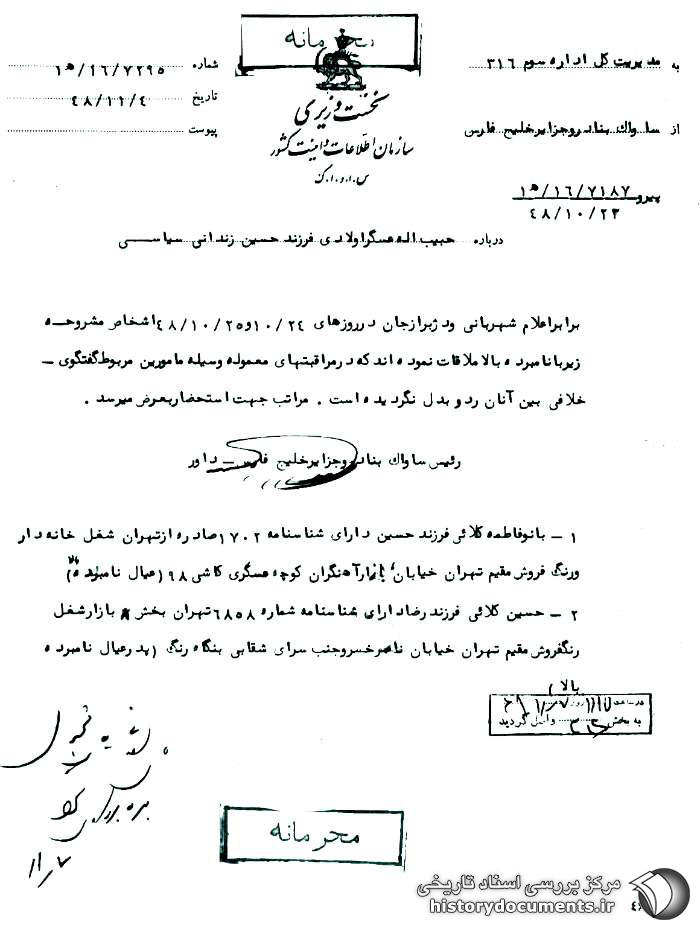 محرمانه
نخست وزیری
سازمان اطلاعات و امنیت کشور
س.ا.و.ا.ک
به مدیریت کل اداره سوم ۳۱۶
از ساواک بنادر و جزایر خلیج فارس
شماره ۱۶/۷۲۹۵/ ﻫ۱
تاریخ ۴۸/۱۱/۴
پیوست
پیرو ۱۶/۷۱۸۷/ ﻫ۱
۴۸/۱۰/۲۳
درباره حبیب اله عسگراولادی فرزند حسین زندانی سیاسی
برابر اعلام شهربانی و دژ برازجان در روزهای ۱۰/۲۴ و ۴۸/۱۰/۲۵ اشخاص مشروحه
زیر با نامبرده بالا ملاقات نموده اند که در مراقبتهای معموله وسیله مامورین مربوط گفتگوی –
خلافی بین آنان رد و بدل نگردیده است . مراتب جهت استحضار بعرض میرسد .
رئیس ساواک بنادر و جزایر خلیج فارس – داور
۱ – بانو فاطمه کلائی فرزند حسین دارای شناسنامه ۱۷۰۲ صادره از تهران شغل خانه دار
ورنگ فروش مقیم تهران خیابان بازار آهنگران کوچه عسگری کاشی ۹۸ (عیال نامبرده بالا)
۲ – حسین کلائی فرزند رضا دارای شناسنامه شماره ۶۸۵۸ تهران بخش ۸ بازار شغل
رنگفروش مقیم تهران خیابان ناصرخسرو جنب سرای شقابی بنگاه رنگ (پدر عیال نامبرده
بالا)
در ساعت روز
به بخش ۳۱۶ واصل گردید
۱۱/۷
محرمانه
مرکز بررسی اسناد تاریخی
historydocuments.ir